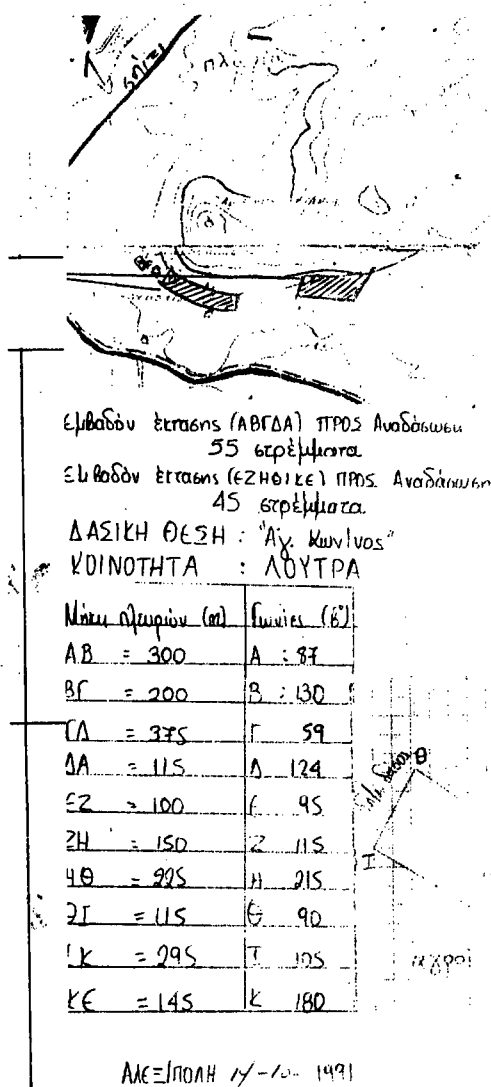 εμβαδόν έκτασης (ΑΒΓΔΑ) ΠΡΟΣ Αναδάσωση
55 στρέμματα
Εμβαδόν έκτασης (ΕΖΗΘΙΚΕ) ΠΡΟΣ Αναδάσωση
45 στρέμματα
ΔΑΣΙΚΗ ΘΕΣΗ : "Αγ. Κων/νος"
ΚΟΙΝΟΤΗΤΑ : ΛΟΥΤΡΑ
Μήκη πλευρών (m) Γωνίες
ΑΒ = 300 Α : 87
ΒΓ = 200 Β : 130
ΓΔ = 375 Γ 59
ΔΑ = 115 Δ 124
ΕΖ = 100 Ε 95
ΖΗ = 150 Ζ 115
ΗΘ = 225 Η 215
ΘΙ = 115 Θ 90
ΙΚ = 295 Ι 105
ΚΕ = 145 Κ 180
Θ
Ι
αγροί
ΑΛΕΞ/ΠΟΛΗ 14-10-1991